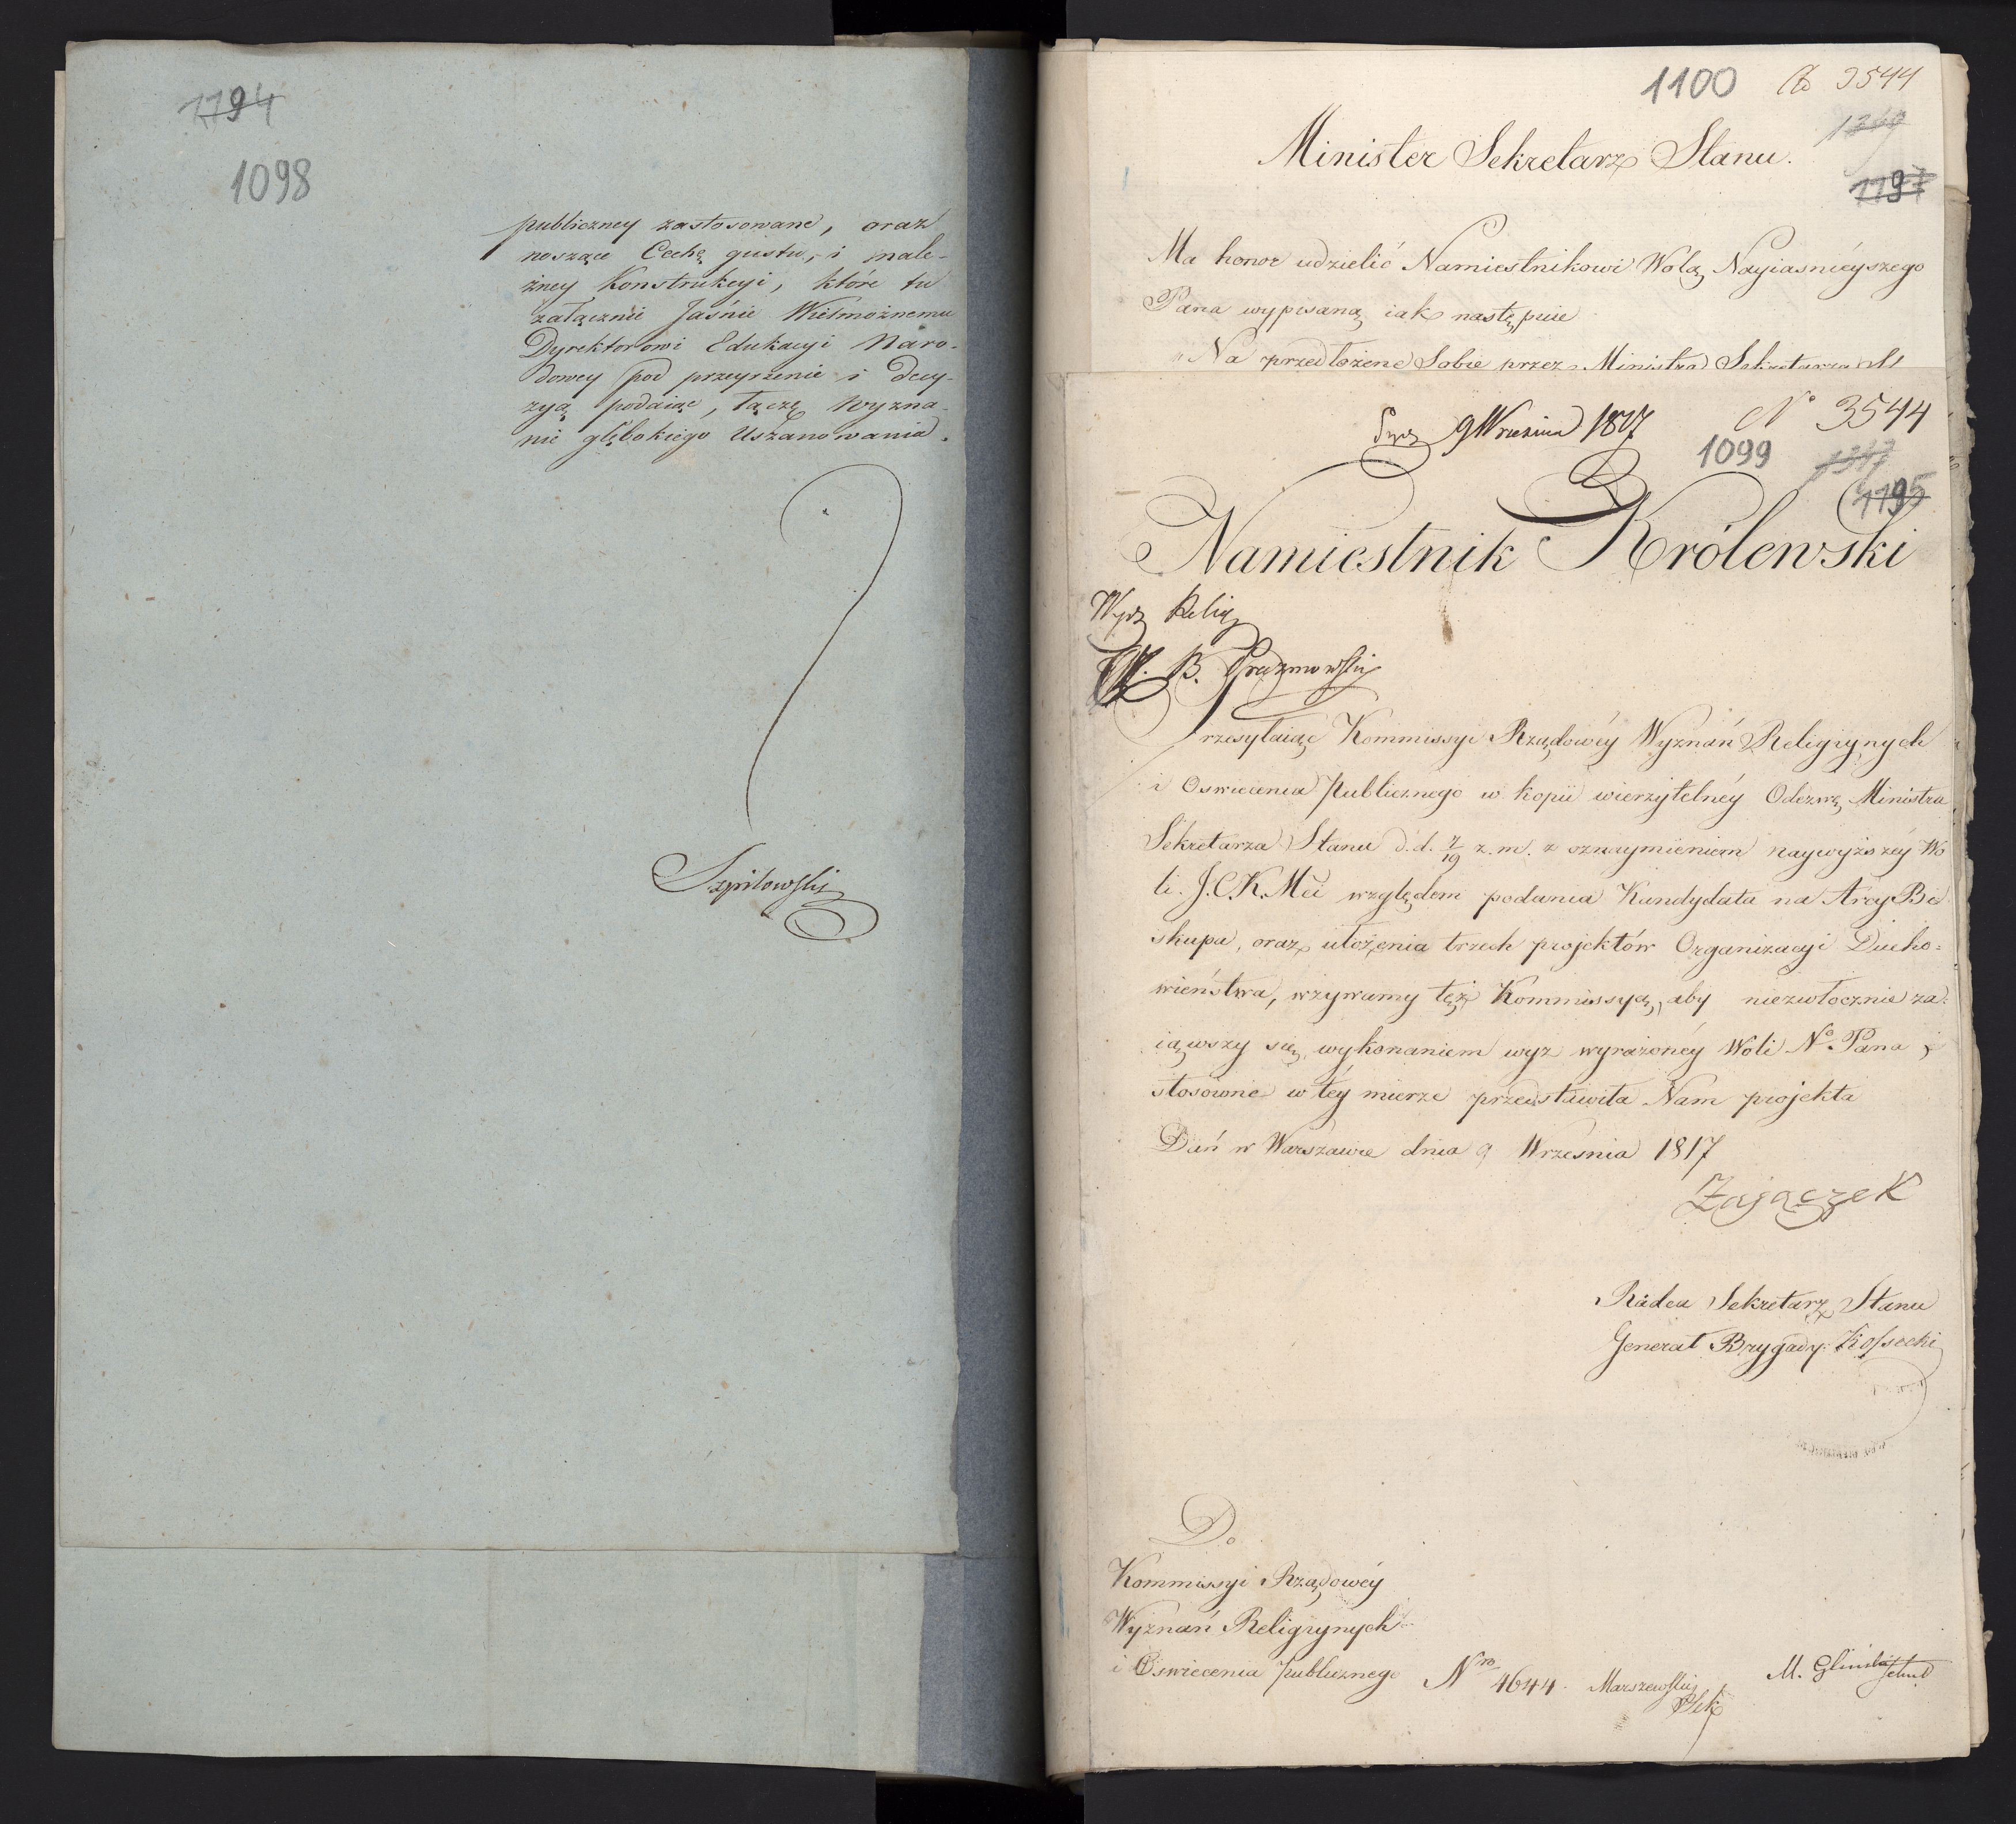 1194
1098
publiczney zastosowane, oraz
noszące Cechę gustu, i nale-
żney Konstrukcyi, które tu
załącznie Jaśnie Wielmożnemu
Dyrektorowi Edukacyi Naro-
dowey pod przeyrzenie i decy-
zyą podaiąc, łączę wyzna-
nie głębokiego Uszanowania.
Szpilowski
1100 3544
Minister Sekretarz Stanu.
1197
Ma honor udzielić Namiestnikowi Wolą Nayiaśnieyszego
Pana wypisaną iak następuie
"Na przedłożenie Sobie przez Ministra Sekretarza St
9 Września 1817 No 3544
1099
1195
Namiestnik Królewski
Wydz Relig
B. Prazmowski
Przesyłaiąc Kommissyi Rządowéy Wyznań Religiynych
i Oswiecenia Publicznego w kopii wierzytelnéy Odezwę Ministra
Sekretarza Stanu d.d. 7/19 z.m. z oznaymieniem naywyższéy Wo
li J.C.K.Mci względem podania Kandydata na ArcyBi
skupa, oraz ułożenia trzech projektów Organizacyi Ducho=
wieństwa, wzywamy tęż Kommissyą, aby niezwłocznie za=
iąwszy się wykonaniem wyż wyrażonéy Woli No. Pana i
stosowne w téy mierze przedstawiła Nam projekta
Dań w Warszawie dnia 9 Września 1817
Zajączek
Radca Sekretarz Stanu
Generał Brygady Kossecki
Do
Kommissyi Rządowéy
Wyznań Religiynych
i Oswiecenia Publicznego Nro 4644. Marszewski M. Gliński